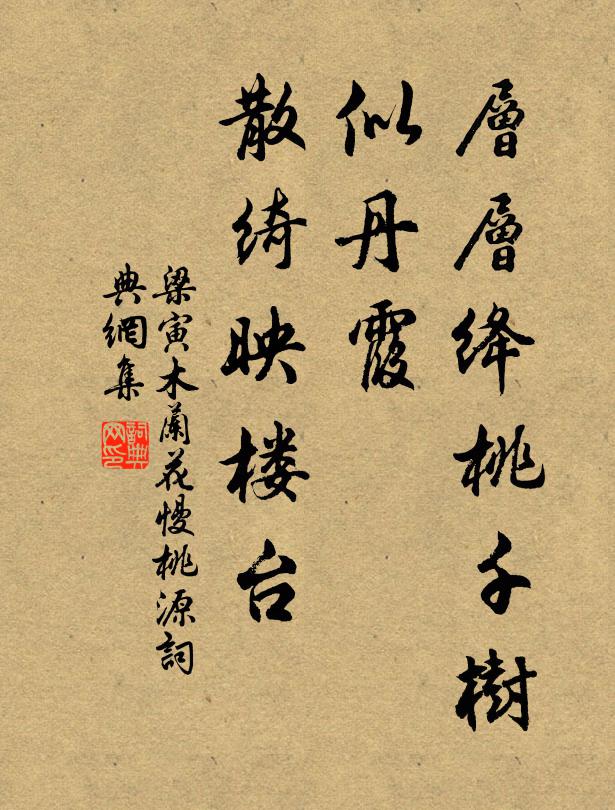 層層絳桃千樹
似丹霞
散綺映楼台
梁寅木蘭花慢桃源詞
典網集
詞典网印